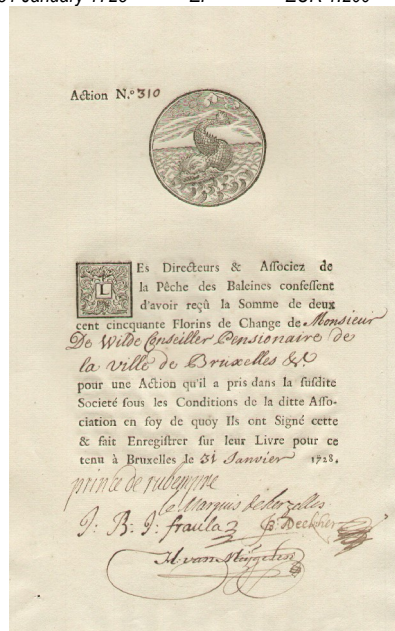 31 January 1728 EF EUR 1.200
Action N.º 310
LEs Directeurs & Aſſociez de
la Pêche des Baleines confeſſent
d'avoir reçû la Somme de deux
cent cincquante Florins de Change de Monsieur
De Wilde Conseiller Pensionaire de
la ville de Bruxelles &.
pour une Action qu'il a pris dans la ſuſdite
Societé ſous les Conditions de la ditte Aſſo-
ciation en foy de quoy Ils ont Signé cette
& fait Enregiſtrer ſur leur Livre pour ce
tenu à Bruxelles le 31 Janvier 1728.
prince de rubempre
le Marquis de herzelles
J: B: J: fraula